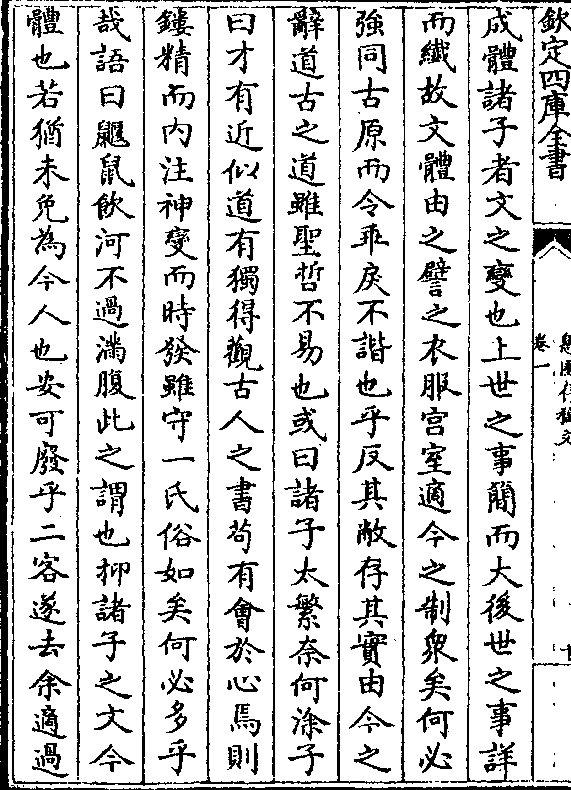 欽定四庫全書
卷一
成體諸子者文之變也上世之事簡而大後世之事詳
而纖故文體由之譬之衣服宫室適今之制衆矣何必
強同古原而令乖戾不諧也乎反其敝存其實由今之
辭道古之道雖聖哲不易也或曰諸子太繁奈何涂子
曰才有近似道有獨得觀古人之書茍有會於心焉則
鏤精而内注神變而時發雖守一氏俗如矣何必多乎
哉語曰鼴鼠飲河不過滿腹此之謂也抑諸子之文今
體也若猶未免為今人也安可廢乎二客遂去余適過